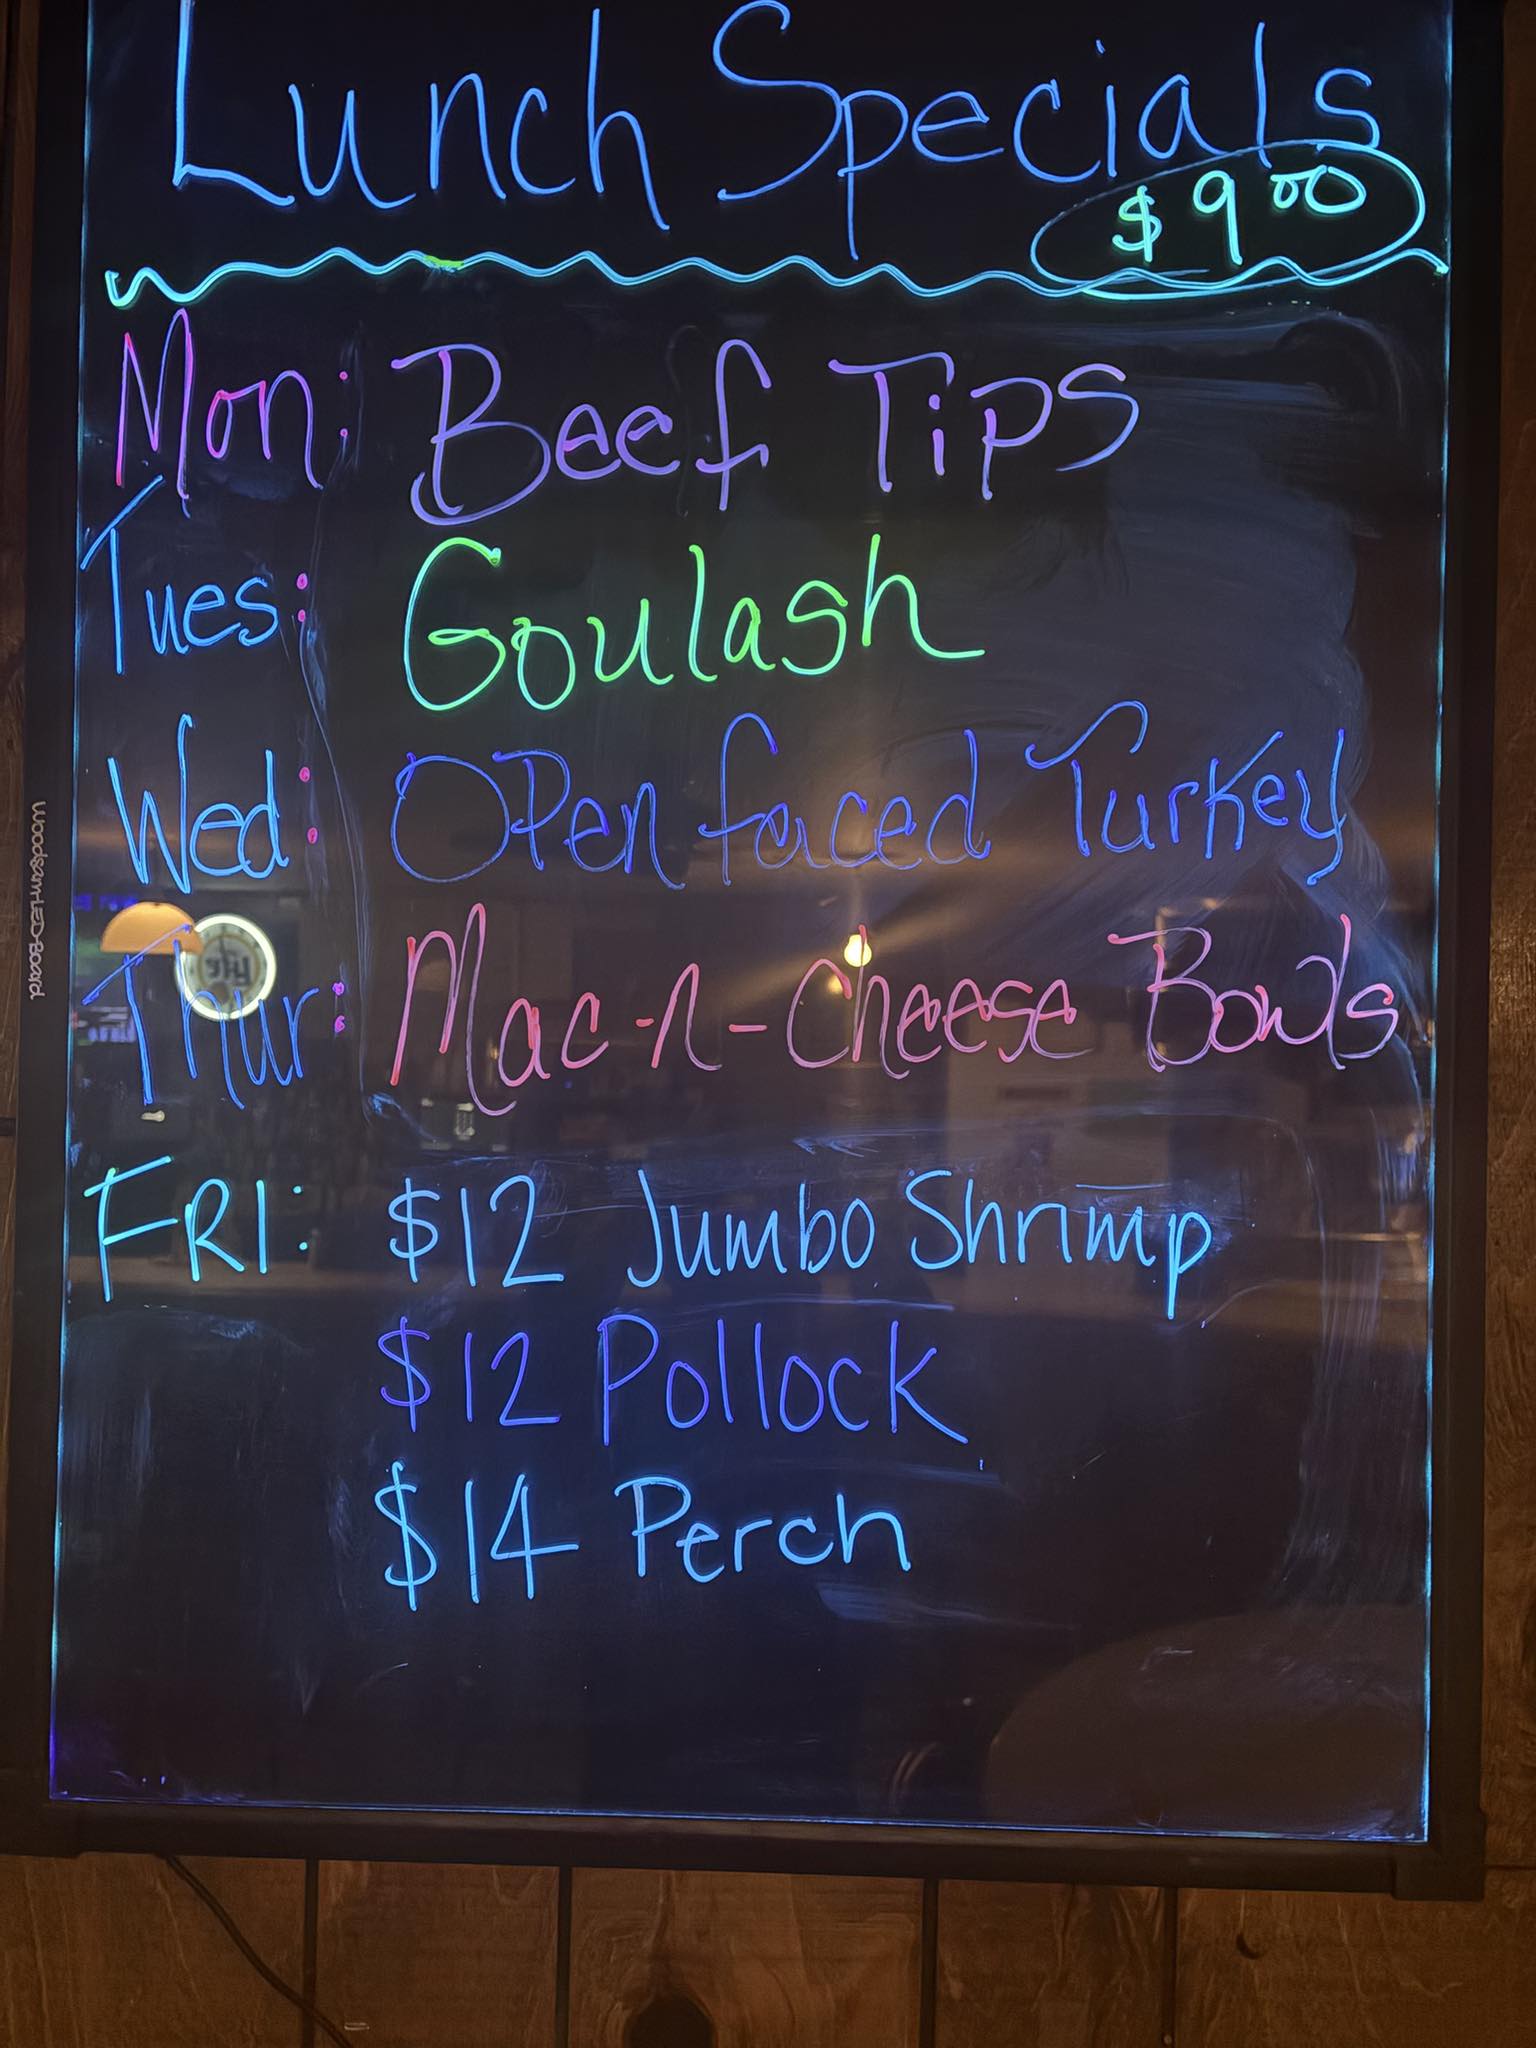 Lunch Specials
$9.00
Mon: Beef Tips
Tues: Goulash
Wed: Open faced Turkey
Thur: Mac-n-Cheese Bowls
FRI: $12 Jumbo Shrimp
$12 Pollock
$14 Perch
Woodsam-LED-Board